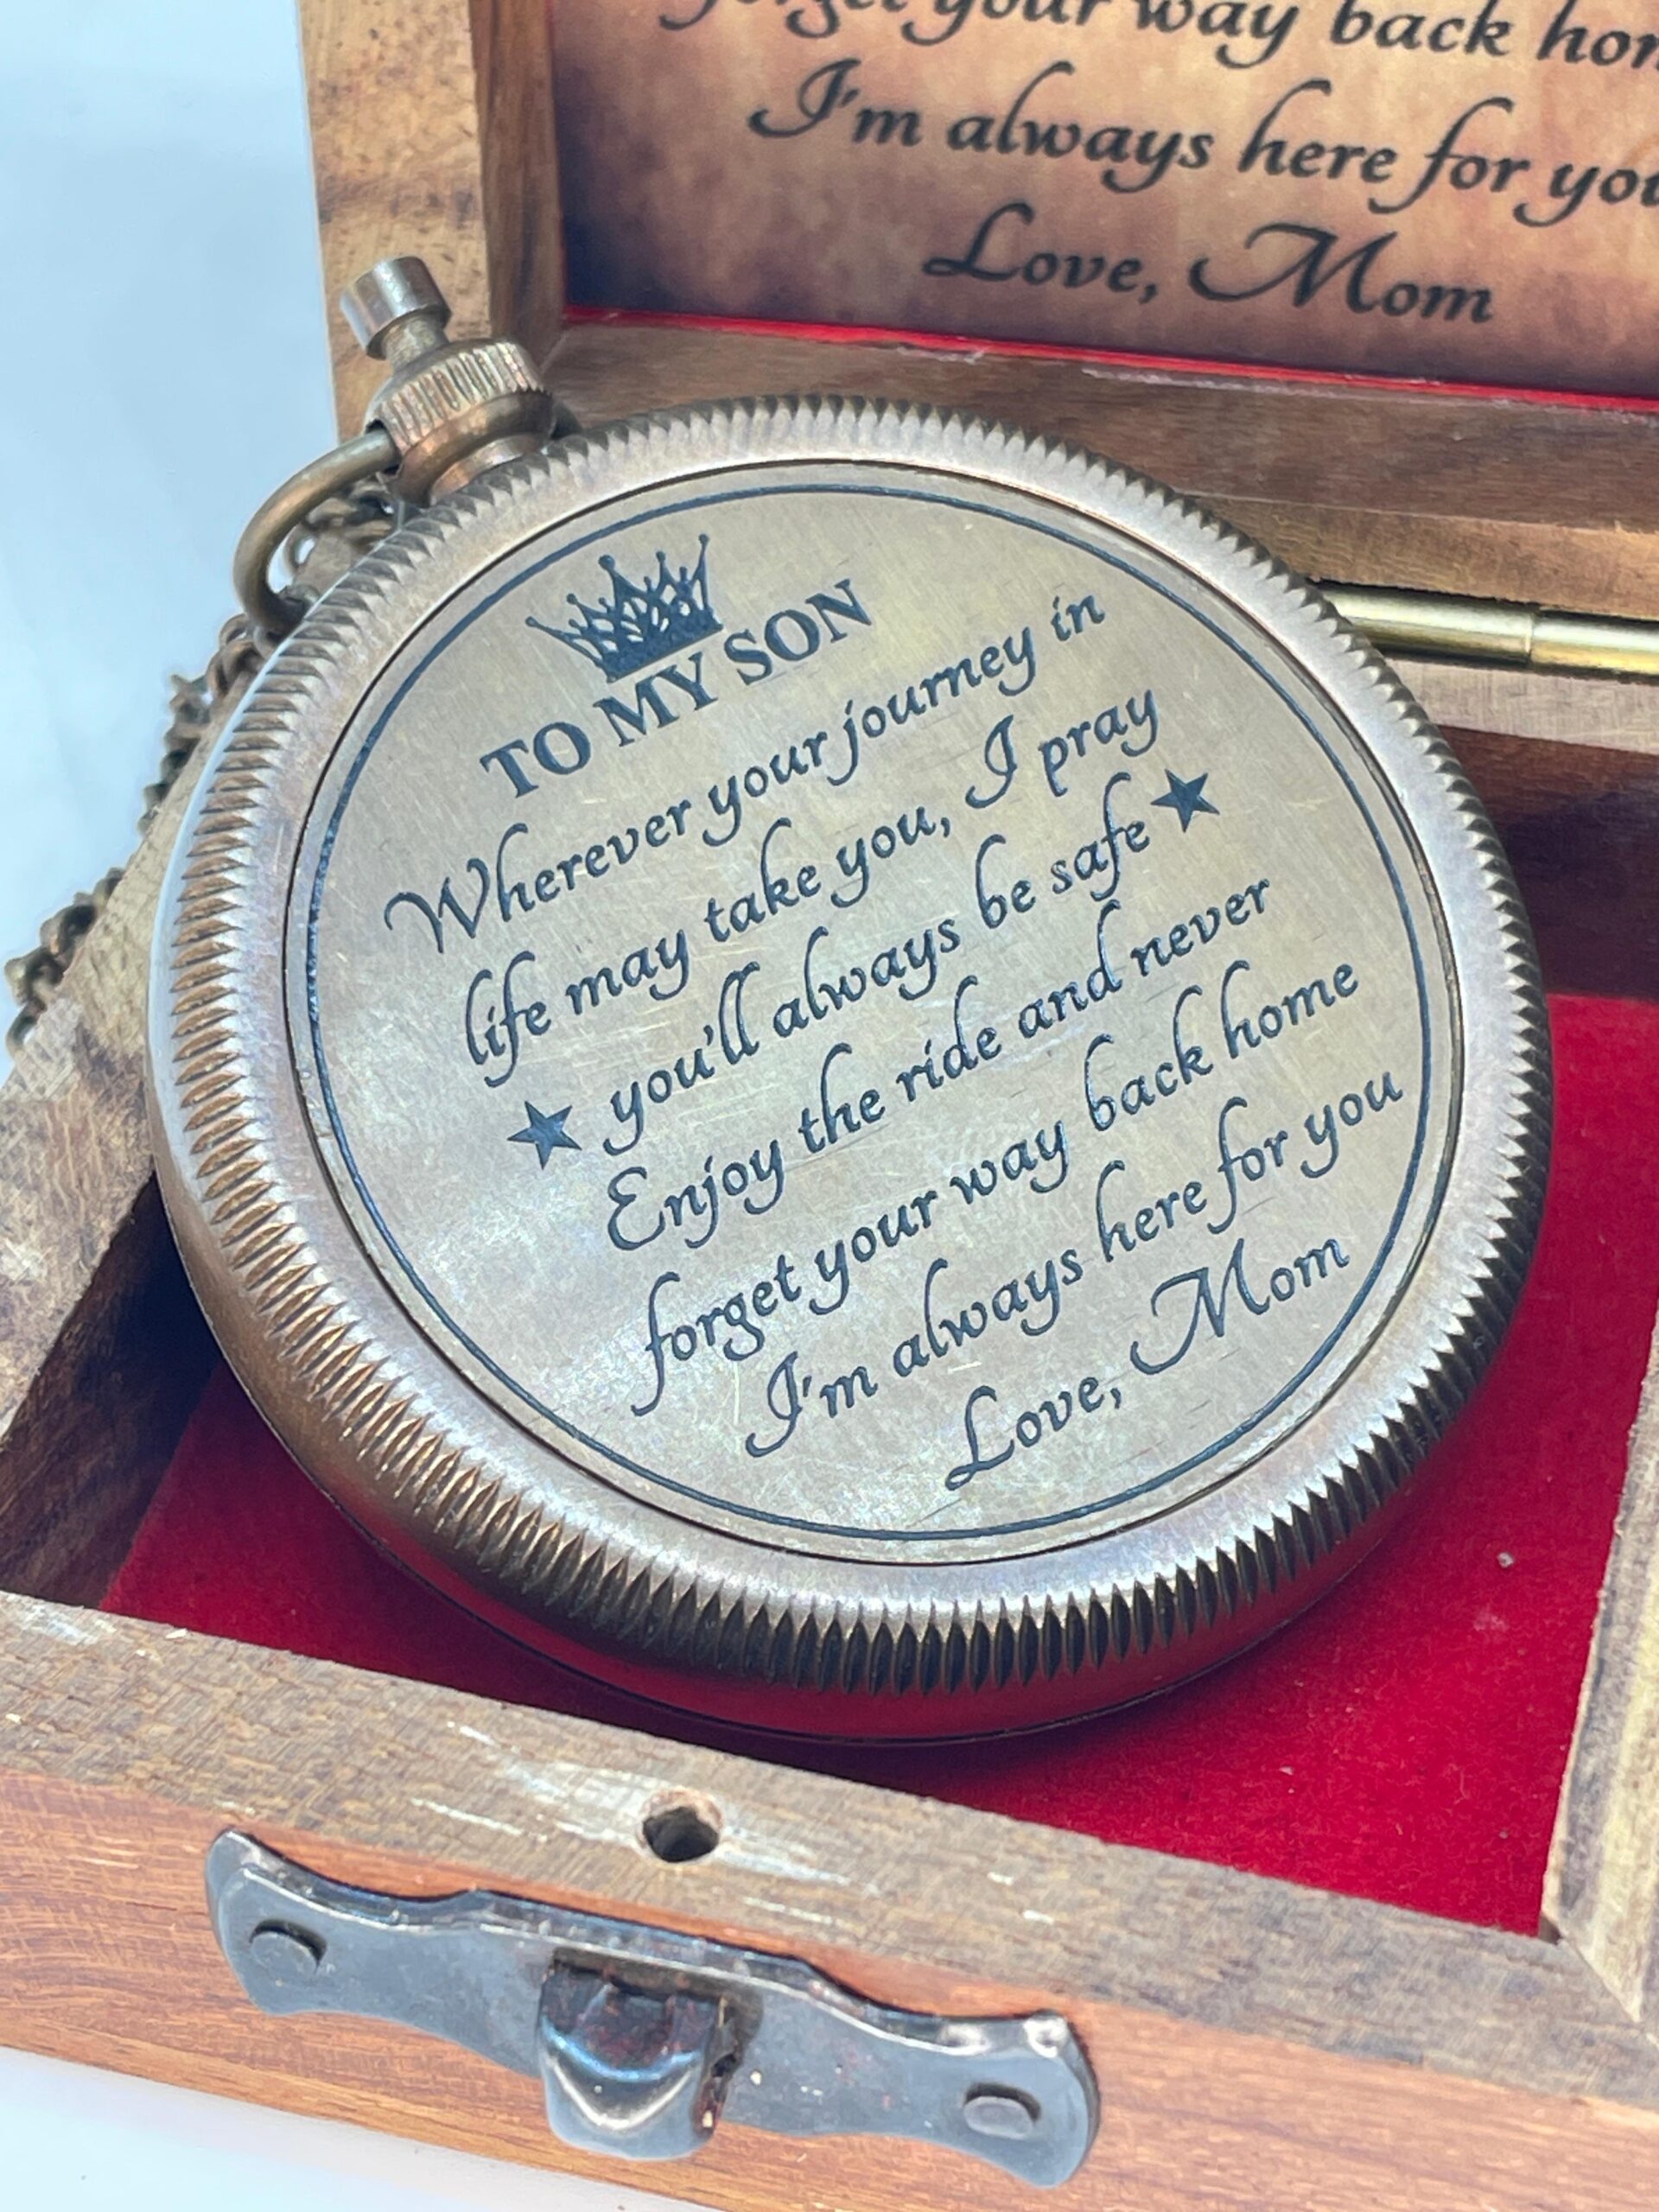 forget your way back
I'm always here for
Love, Mom
TO MY SON
Wherever your journey in
life may take you, I pray
you'll always be safe
Enjoy the ride and never
forget your way back home
I'm always here for you
Love, Mom